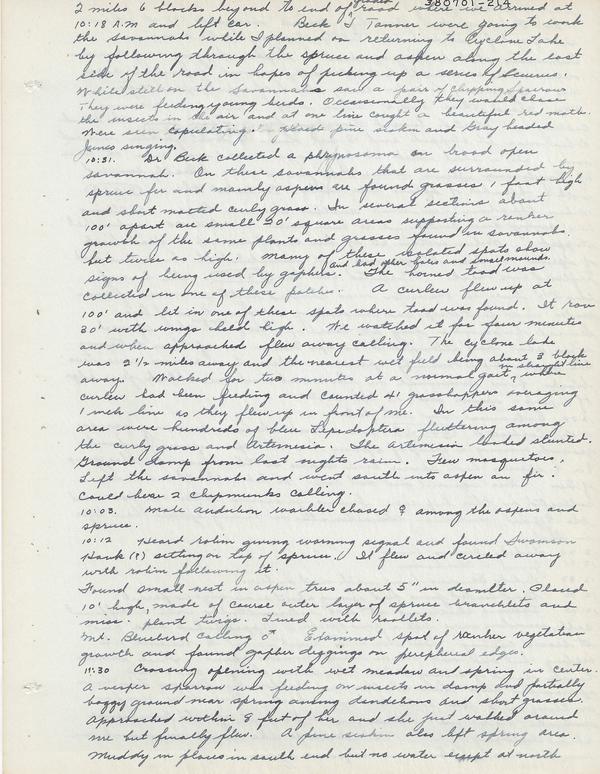 380701-214
2 miles 6 blocks beyond to end of road where we arrived at
10:18 A.M and left car. Beck & Tanner were going to work
the savannahs while I planned on returning to Cyclone Lake
by following through the spruce and aspen along the east
side of the road in hopes of picking up a series of
While still on the Savannahs saw a pair of chipping sparrows
They were feeding young birds. Occassionally they would chase
the insects in the air and at one time caught a beautiful red moth.
Were seen copulating. pine siskin and Gray headed
Junco singing.
10:31. Dr Beck collected a phrynosoma on broad open
savannah. On these savannahs that are surrounded by
spruce fir and mainly aspens are found grasses 1 foot high
and short matted curly grass. In several sections about
100' apart are small 20' square areas supporting a ranker
growth of the same plants and grasses found in savannahs.
but twice as high. Many of these isolated spots show
signs of being used by gophers. and had other holes and small mounds. The horned toad was
collected in one of these patches. A curlew flew up at
100' and lit in one of these spots where toad was found. It ran
30' with wings held high. We watched it for four minutes
and when approached flew away calling. The cyclone lake
was 2 1/2 miles away and the nearest wet field being about 3 block
away. in straight line Walked for two minutes at a normal gait, where
curlew had been feeding and counted 41 grasshoppers averaging
1 inch line as they flew up in front of me. In this same
area were hundreds of blue Lepedoptera fluttering among
the curly grass and artemesia. The Artemesia looked stunted.
Ground damp from last nights rain. Few mosquitoes.
Left the savannahs and went south into aspen an fir.
Could hear 2 chipmunks calling.
10:03. Male audubon warbler chased ♀ among the aspens and
spruce.
10:12 Heard robin giving warning signal and found Swainson
Hawk (?) sitting on top of spruce. It flew and circled away
with robin following it.
Found small nest in aspen tree about 5" in diamiter. Placed
10' high, made of course outer layer of spruce branchlets and
misc. plant twigs. Lined with rootlets.
Mt. Bluebird calling ♂ Examined spot of ranker vegetation
growth and found gopher deggings on peripheral edges.
11:30 Crossing opening with wet meadow and spring in center.
A vesper sparrow was feeding on insects in damp and partially
boggy ground near spring among dandelions and short grasses.
Approached within 8 feet of her and she just walked around
me but finally flew. A pine siskin also left spring area.
Muddy in places in south end but no water except at north